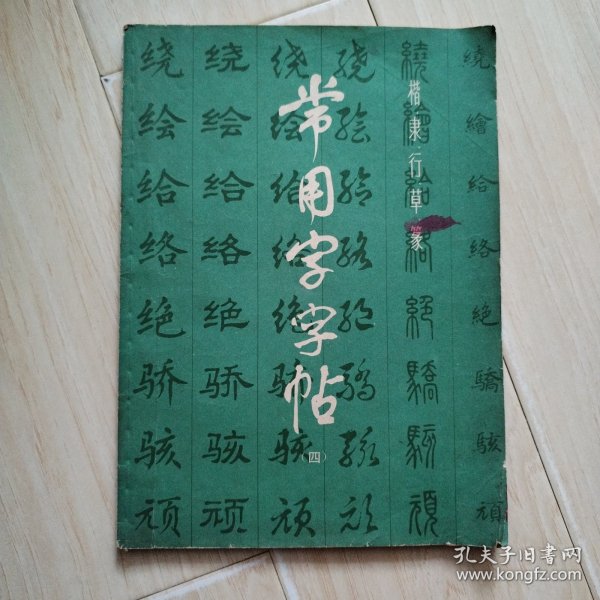 常用字字帖
(四)
楷隶·行草篆
绕绘给络绝骄骇顽
绕绘给络绝骄骇顽
绕绘给络绝骄骇顽
绕绘给络绝骄骇顽
繞繪給絡絕驕駭頑
繞繪給絡絶驕駭頑
孔夫子旧书网
www.kongfz.com